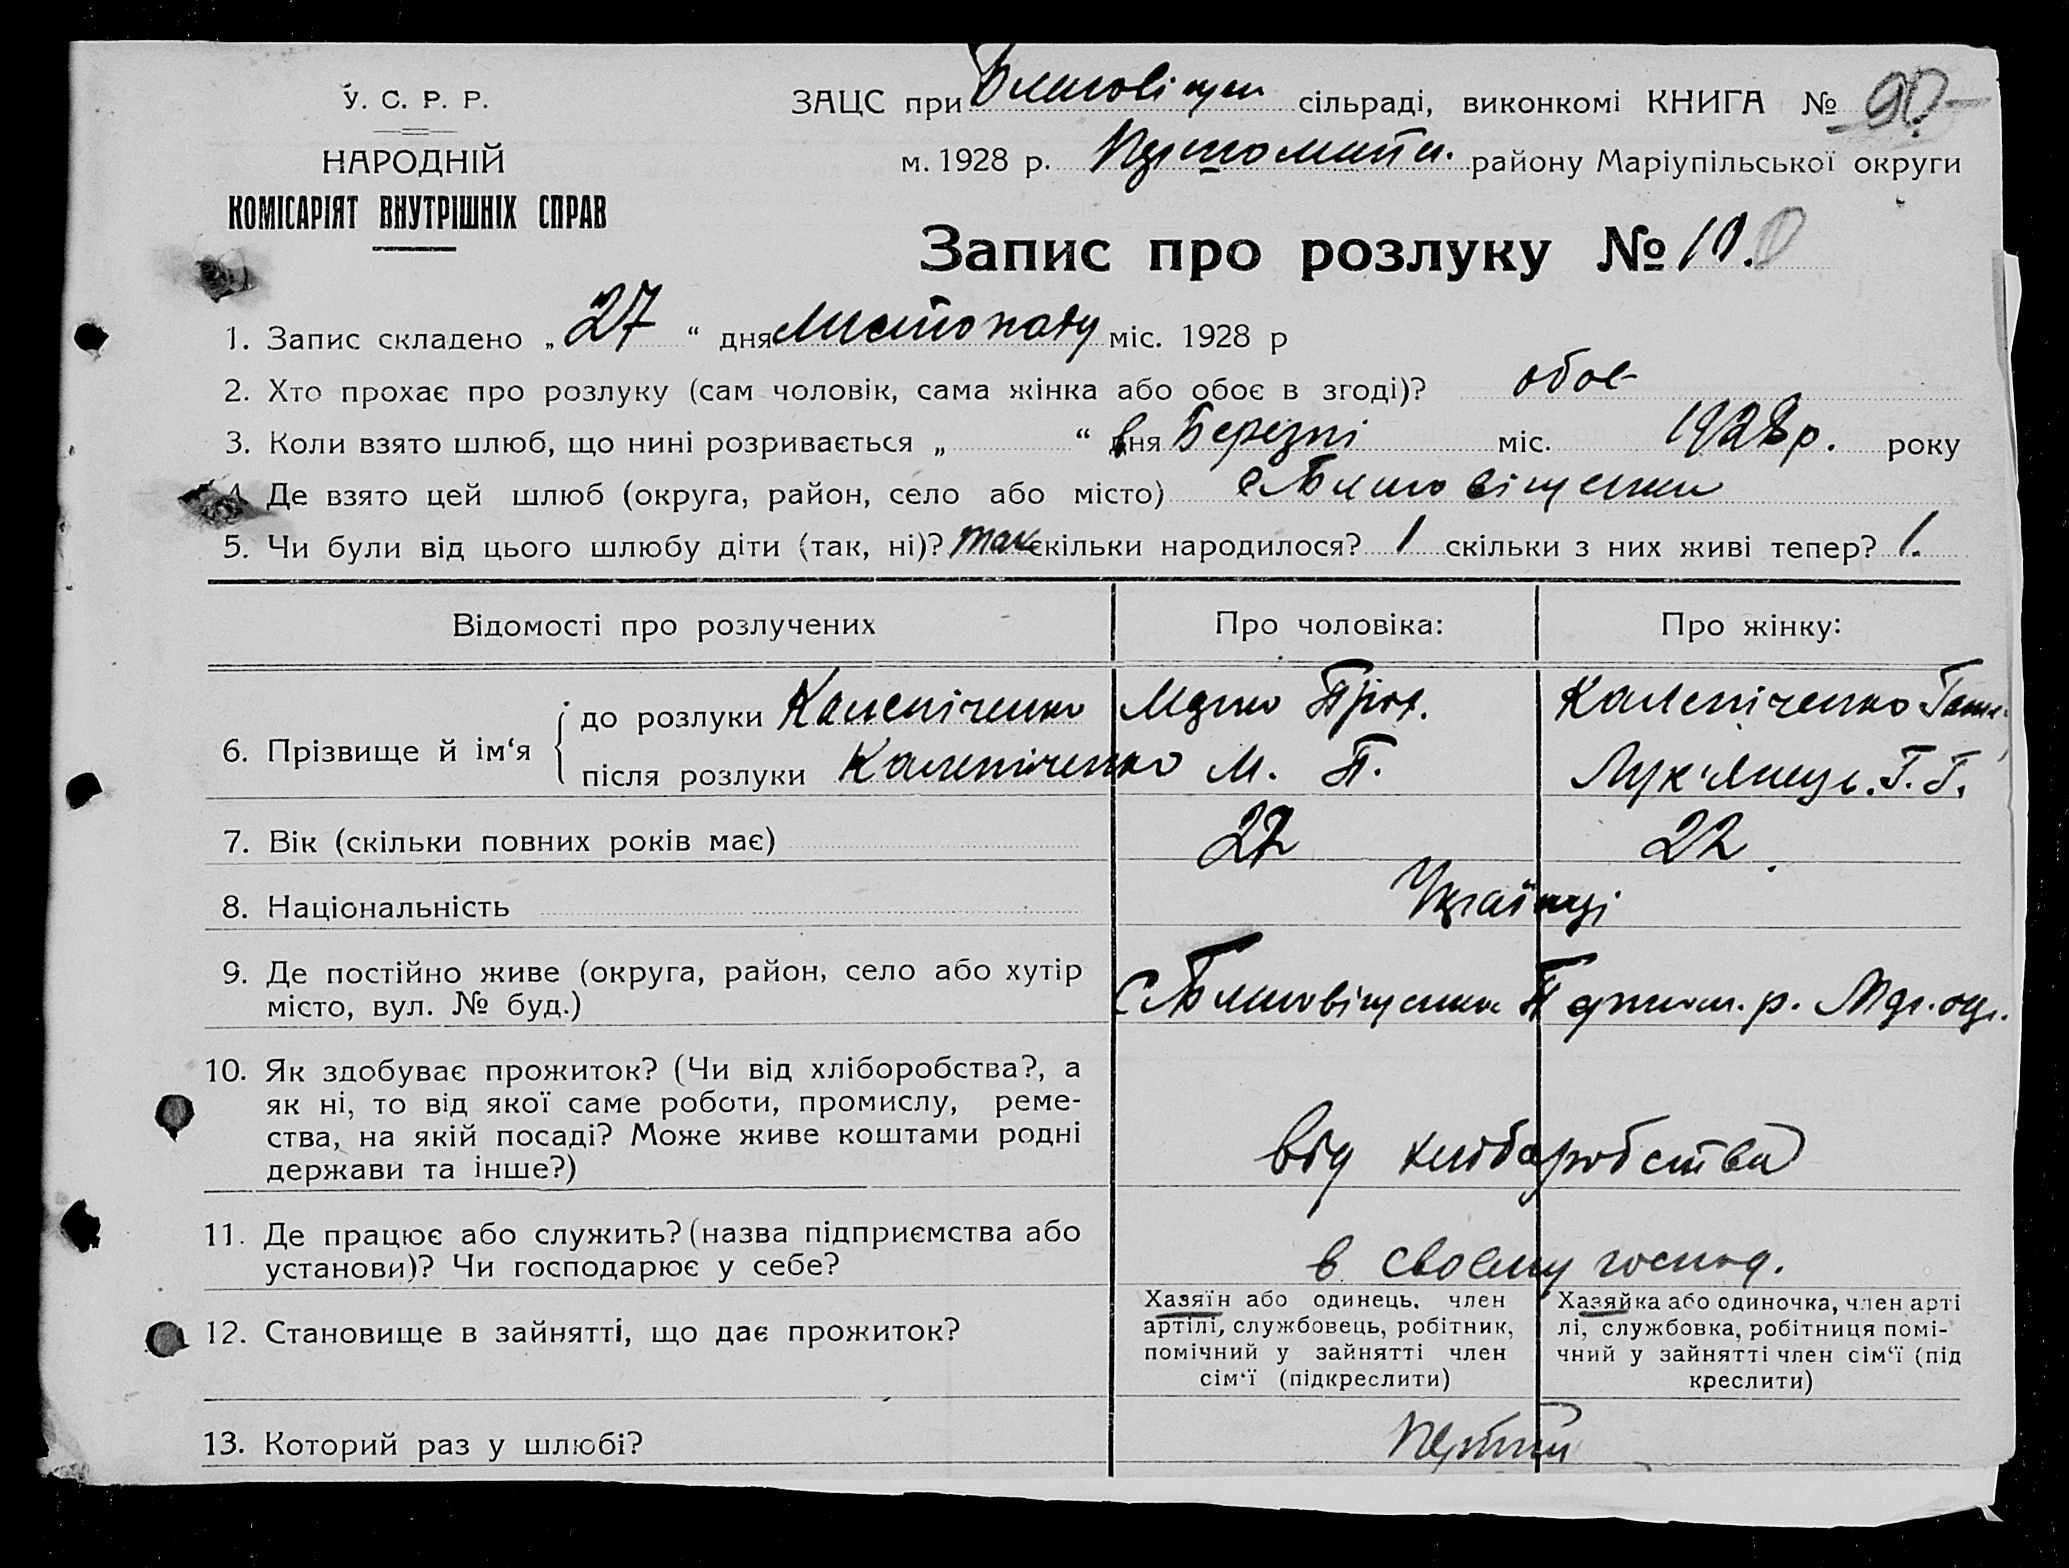 У. С. Р. Р.
НАРОДНІЙ
КОМІСАРІЯТ ВНУТРІШНІХ СПРАВ
ЗАЦС при Благовіщен сільраді, виконкомі КНИГА № 90
м. 1928 р. району Маріупільської округи
Запис про розлуку № 10.
1. Запис складено „ 27 “ дня листопаду міс. 1928 р
2. Хто прохає про розлуку (сам чоловік, сама жінка або обоє в згоді)? обоє
3. Коли взято шлюб, що нині розривається „ “ дня в Березні міс. 1928 р. року
4. Де взято цей шлюб (округа, район, село або місто) с Благовіщенка
5. Чи були від цього шлюбу діти (так, ні)? так скільки народилося? 1 скільки з них живі тепер? 1.
Відомості про розлучених Про чоловіка: Про жінку:
6. Прізвище й ім‘я
до розлуки Каленіченко
після розлуки Каленіченко М. П. Лук'янець. Г. Г.
7. Вік (скільки повних років має) 22 22.
8. Національність Українці
9. Де постійно живе (округа, район, село або хутір
місто, вул. № буд.) С Благовіщенка
10. Як здобуває прожиток? (Чи від хліборобства?, а
як ні, то від якої саме роботи, промислу, реме-
ства, на якій посаді? Може живе коштами родні
держави та інше?) від хліборобства
11. Де працює або служить? (назва підприємства або
установи)? Чи господарює у себе? в своєму господ.
12. Становище в зайнятті, що дає прожиток?
Хазяїн або одинець, член
артілі, службовець, робітник,
помічний у зайнятті член
сім‘ї (підкреслити)
Хазяйка або одиночка, член арті
лі, службовка, робітниця помі-
чний у зайнятті член сім‘ї (під
креслити)
13. Которий раз у шлюбі? перший